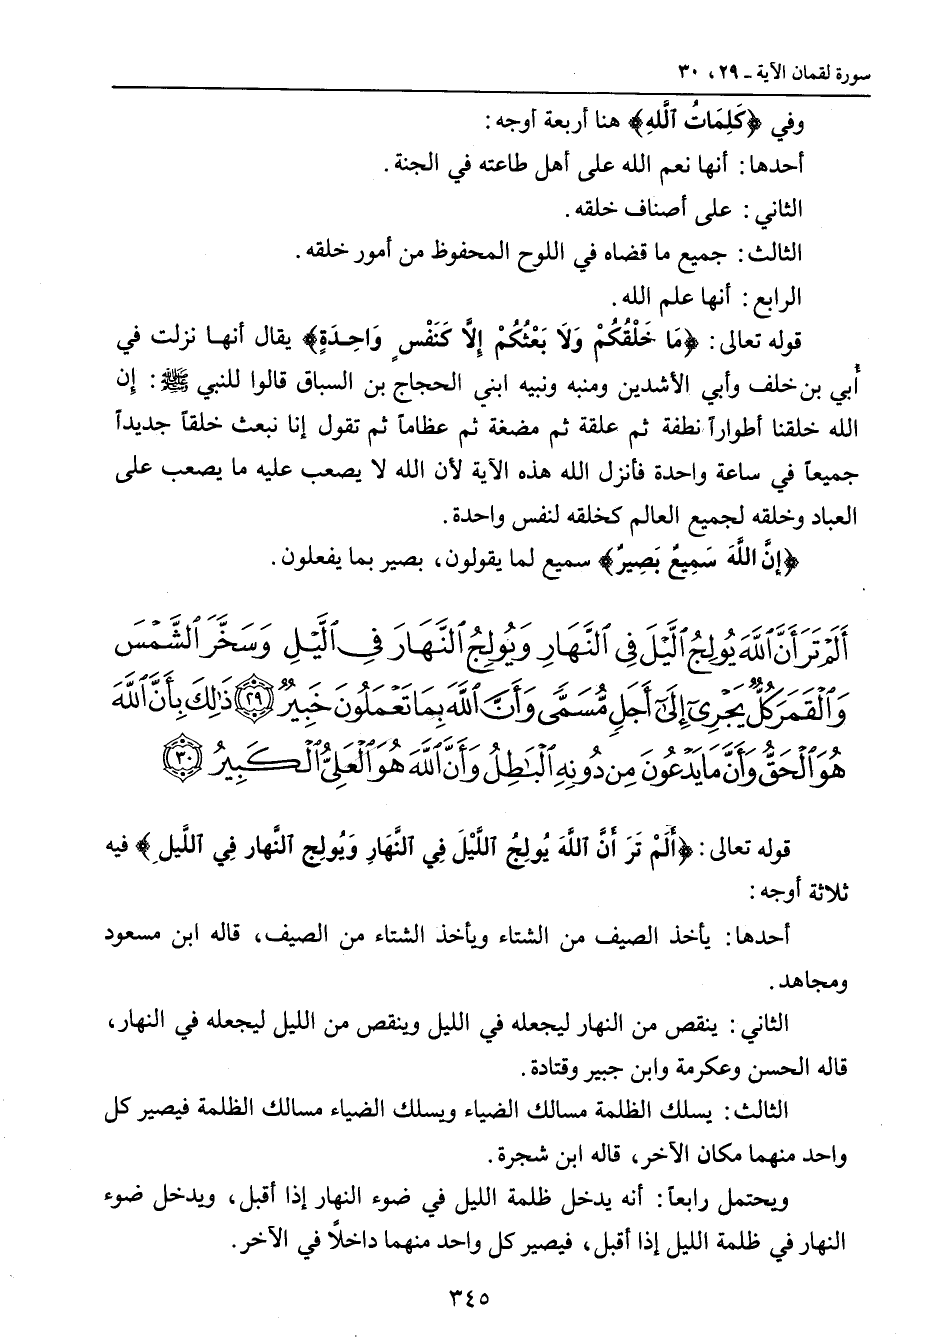 سورة لقمان الآية ـ ٢٩، ٣٠
وفي ﴿كَلِمَاتُ ٱللَّهِ﴾ هنا أربعة أوجه:
أحدها: أنها نعم الله على أهل طاعته في الجنة.
الثاني: على أصناف خلقه.
الثالث: جميع ما قضاه في اللوح المحفوظ من أمور خلقه.
الرابع: أنها علم الله.
قوله تعالى: ﴿مَا خَلْقُكُمْ وَلَا بَعْثُكُمْ إِلَّا كَنَفْسٍ وَاحِدَةٍ﴾ يقال أنها نزلت في
أُبي بن خلف وأبي الأشدين ومنبه ونبيه ابني الحجاج بن السباق قالوا للنبي ﷺ: إن
الله خلقنا أطواراً نطفة ثم علقة ثم مضغة ثم عظاماً ثم تقول إنا نبعث خلقاً جديداً
جميعاً في ساعة واحدة فأنزل الله هذه الآية لأن الله لا يصعب عليه ما يصعب على
العباد وخلقه لجميع العالم كخلقه لنفس واحدة.
﴿إِنَّ اللَّهَ سَمِيعٌ بَصِيرٌ﴾ سميع لما يقولون، بصير بما يفعلون.
أَلَمْ تَرَ أَنَّ ٱللَّهَ يُولِجُ ٱلَّيْلَ فِي ٱلنَّهَارِ وَيُولِجُ ٱلنَّهَارَ فِي ٱلَّيْلِ وَسَخَّرَ ٱلشَّمْسَ
وَٱلْقَمَرَ كُلٌّ يَجْرِىٓ إِلَىٰٓ أَجَلٍ مُّسَمًّى وَأَنَّ ٱللَّهَ بِمَا تَعْمَلُونَ خَبِيرٌ ﴿٢٩﴾ ذَٰلِكَ بِأَنَّ ٱللَّهَ
هُوَ ٱلْحَقُّ وَأَنَّ مَا يَدْعُونَ مِن دُونِهِ ٱلْبَٰطِلُ وَأَنَّ ٱللَّهَ هُوَ ٱلْعَلِىُّ ٱلْكَبِيرُ ﴿٣٠﴾
قوله تعالى: ﴿أَلَمْ تَرَ أَنَّ ٱللَّهَ يُولِجُ ٱللَّيْلَ فِي ٱلنَّهَارِ وَيُولِج ٱلنَّهار فِي ٱللَّيلِ﴾ فيه
ثلاثة أوجه:
أحدها: يأخذ الصيف من الشتاء ويأخذ الشتاء من الصيف، قاله ابن مسعود
ومجاهد.
الثاني: ينقص من النهار ليجعله في الليل وينقص من الليل ليجعله في النهار،
قاله الحسن وعكرمة وابن جبير وقتادة.
الثالث: يسلك الظلمة مسالك الضياء ويسلك الضياء مسالك الظلمة فيصير كل
واحد منهما مكان الآخر، قاله ابن شجرة.
ويحتمل رابعاً: أنه يدخل ظلمة الليل في ضوء النهار إذا أقبل، ويدخل ضوء
النهار في ظلمة الليل إذا أقبل، فيصير كل واحد منهما داخلاً في الآخر.
٣٤٥